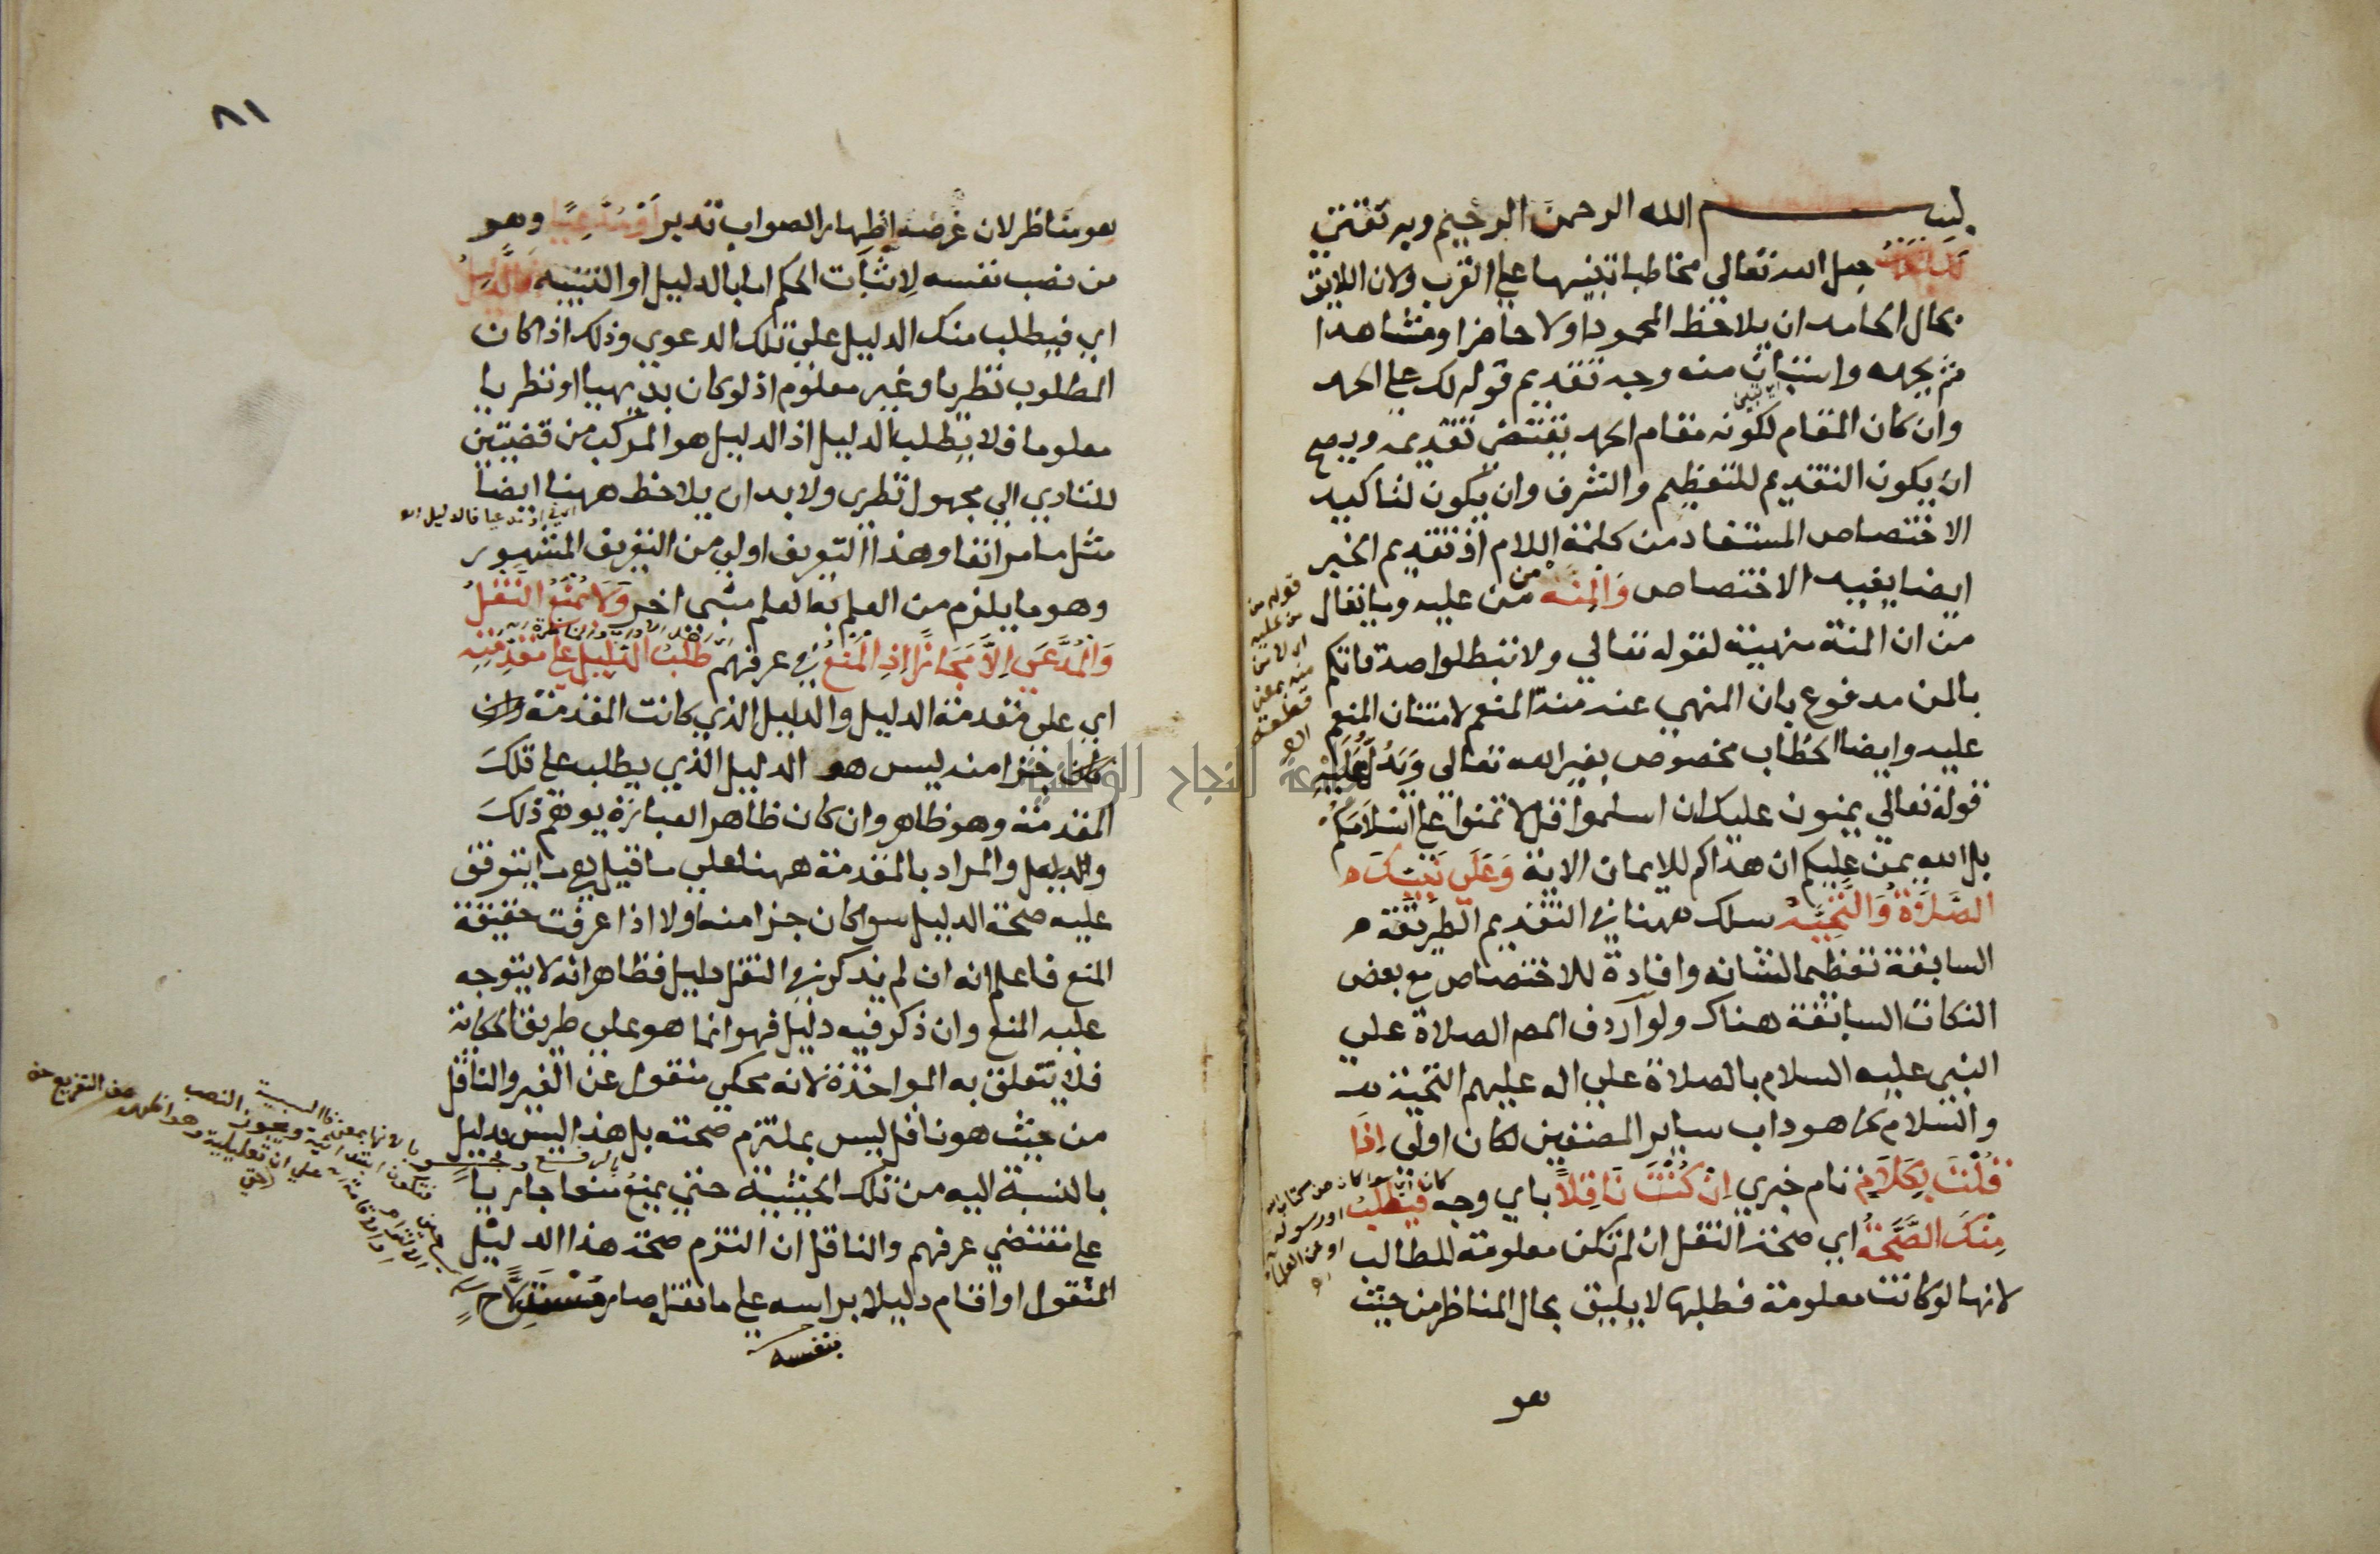 بسم الله الرحمن الرحيم وبه ثقتي
لك الحمد جعل الله تعالي مخاطبا تنبيها علي القرب ولان اللايق
بحال الحامد ان يلاحظ المحمود اولا حاضرا ومشاهدا
ثم يحمده واستبان منه وجه تقديم قوله لك علي الحمد
وان كان المقام لكونه مقام الحمد يقتضي تقديمه ويصح
ان يكون التقديم للتعظيم والتشرف وان يكون لتاكيد
الاختصاص المستفاد من كلمة اللام اذ تقديم الخبر
ايضا يفيد الاختصاص والمنة من من عليه وما يقال
من ان المنة منهية لقوله تعالي ولا تبطلوا صدقاتكم
بالمن مدفوع بان المنهي عنه منة المنعم لامتنان المنعم
عليه وايضا الخطاب مخصوص بغير الله تعالي ويدل عليه
قوله تعالي يمنون عليك ان اسلموا قل لا تمنوا علي اسلامكم
بل الله يمن عليكم ان هداكم للايمان الاية وعلي نبيك
الصلاة والتحية سلك ههنا في التقديم الطريقة
السابقة تعظيما لشانه وافادة للاختصاص مع بعض
النكات السابقة هناك ولو اردف المص الصلاة علي
النبي عليه السلام بالصلاة علي اله عليهم التحية
والسلام كما هو داب ساير المصنفين لكان اولي اذا
قلت بكلام تام خبري ان كنت ناقلا باي وجه كان فيطلب
منك الصحة اي صحة النقل ان لم تكن معلومة للطالب
لانها لو كانت معلومة فطلبها لا يليق بحال المناظر من حيث
هو
قوله من
من عليه
منه بمعني
سوا كان من كتاب الله
او رسوله
او من العلماء
٨١
هو مناظر لان غرضه اظهار الصواب تدبر او مدعيا وهو
من نصب نفسه لاثبات الحكم اما بالدليل او التنبيه فالدليل
اي فيطلب منك الدليل علي تلك الدعوي وذلك اذا كان
المطلوب نظريا وغير معلوم اذ لو كان بديهيا او نظريا
معلوما فلا يطلب الدليل اذ الدليل هو المركب من قضيتين
للتادي الي مجهول نظري ولا بد ان يلاحظ ههنا ايضا
اي في او مدعيا فالدليل
مثل ما مر انفا وهذا التعريف اولي من التعريف المشهور
وهو ما يلزم من العلم به العلم بشي اخر ولا يمنع النقل
والمدعي الا مجازا اذ المنع في عرفهم طلب الدليل علي مقدمته
اي علي مقدمة الدليل والدليل الذي كانت المقدمة
جزا منه ليس هو الدليل الذي يطلب علي تلك
المقدمة وهو ظاهر وان كان ظاهر العبارة يوهم ذلك
والمراد بالمقدمة ههنا علي ما قيل هي ما يتوقف
عليه صحة الدليل سوا كان جزا منه اولا اذا عرفت حقيقة
المنع فاعلم انه ان لم يذكر في النقل دليل فظاهر انه لا يتوجه
عليه المنع وان ذكر فيه دليل فهو انما هو علي طريق الحكاية
فلا يتعلق به المواخذة لانه محكي منقول عن الغير والناقل
من حيث هو ناقل ليس بملتزم صحته بل هذا ليس بدليل
بالنسبة اليه من تلك الحيثية حتي يمنع منعا جاريا
علي مقتضي عرفهم والناقل ان التزم صحة هذا الدليل
المنقول او اقام دليلا براسه علي ما نقل صار مستدلا ح
بنفسه